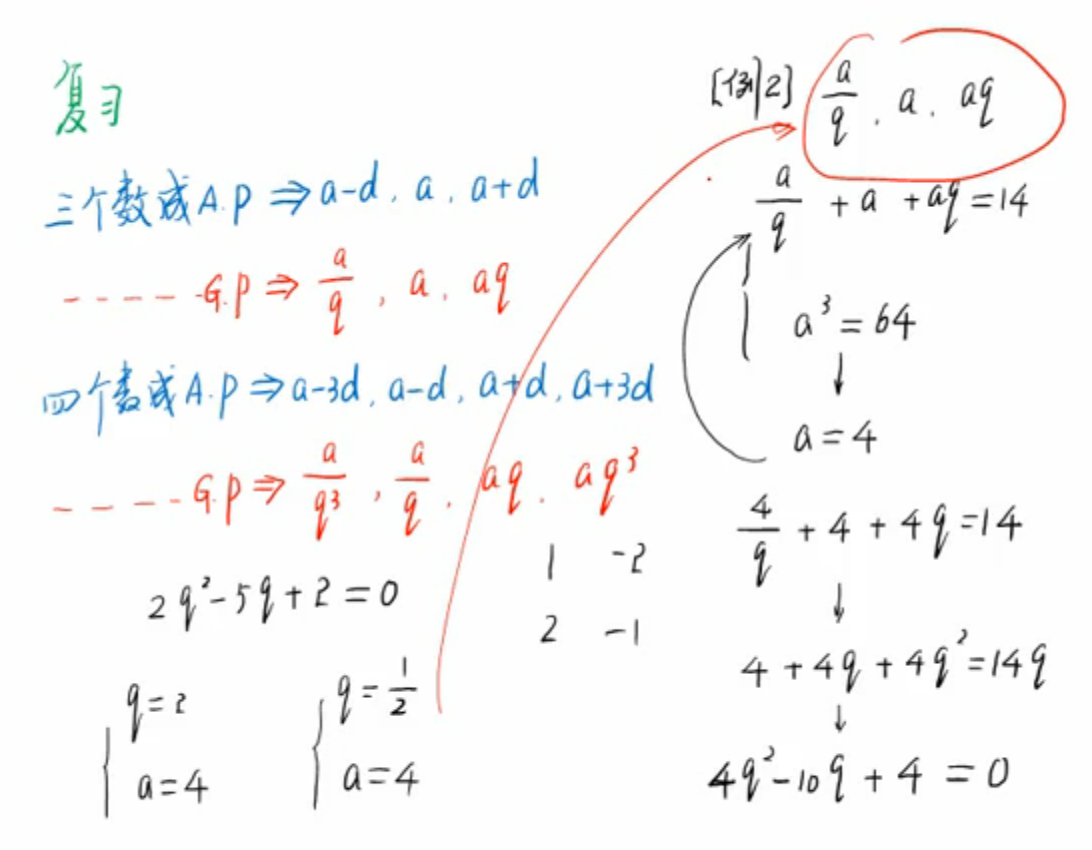 复习
三个数成A.P ⇒ a-d, a, a+d
----- G.P ⇒ a/q, a, aq
四个数成A.P ⇒ a-3d, a-d, a+d, a+3d
----- G.P ⇒ a/q³, a/q, aq, aq³
2q²-5q+2=0
1 -2
2 -1
{ q=2
a=4
{ q=1/2
a=4
[例2] a/q, a, aq
a/q + a + aq = 14
a³ = 64
↓
a = 4
4/q + 4 + 4q = 14
↓
4 + 4q + 4q² = 14q
↓
4q² - 10q + 4 = 0